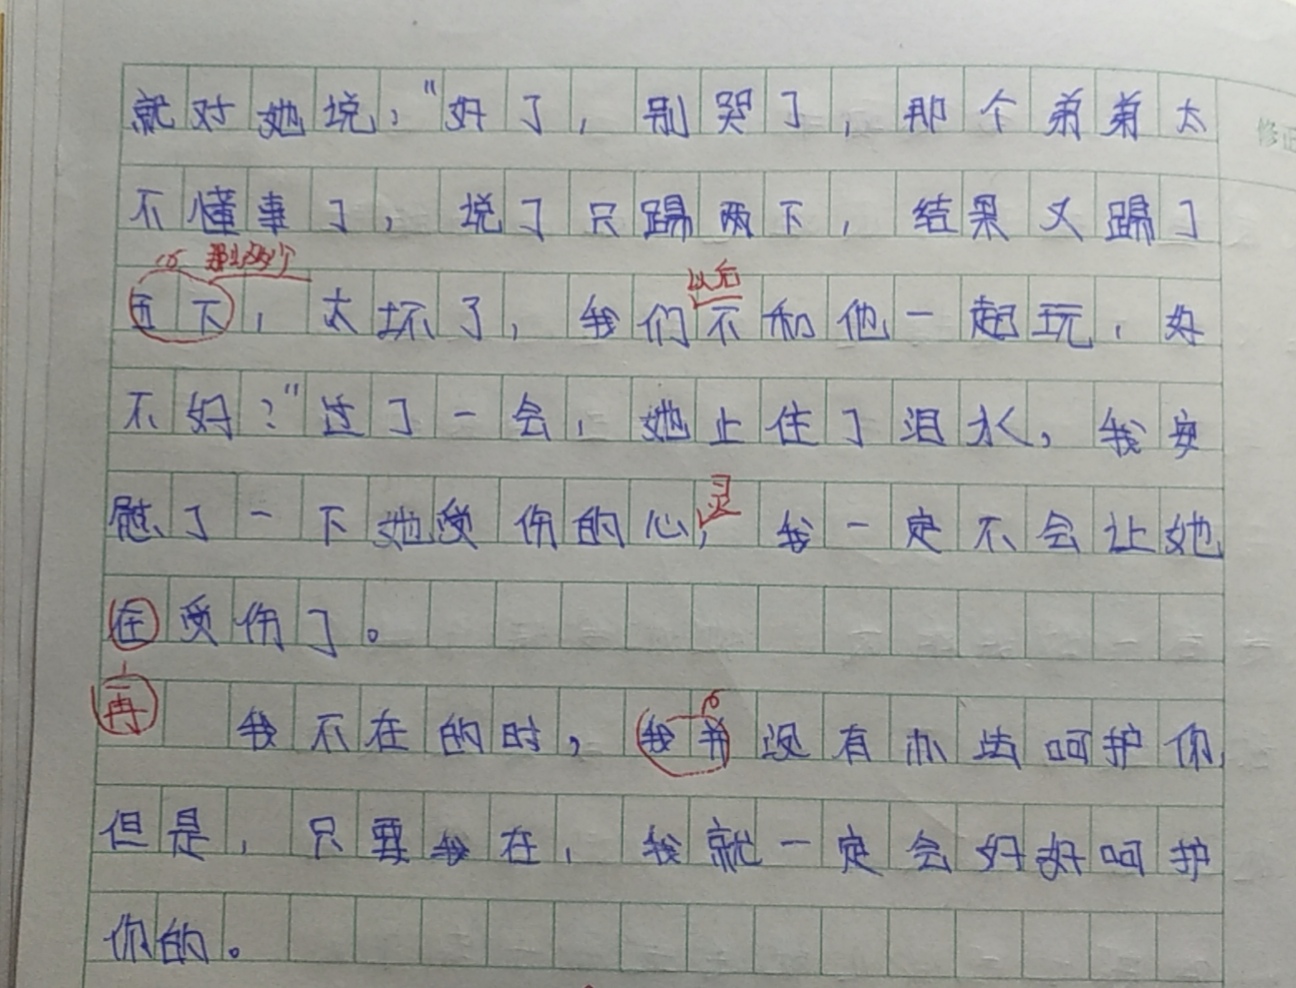 就对她说："好了，别哭了，那个弟弟太
修正
不懂事了，说了只踢两下，结果又踢了
那么多个
五下，太坏了，我们不和他一起玩，好
以后
不好？"过了一会，她止住了泪水，我安
慰了一下她受伤的心，我一定不会让她
灵
在受伤了。
再
我不在的时，我并没有办法呵护你，
但是，只要我在，我就一定会好好呵护
你的。